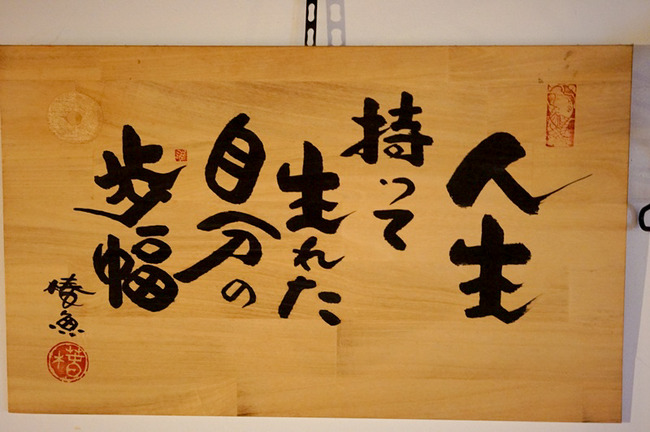 人生
持って
生れた
自分の
歩幅
椿魚